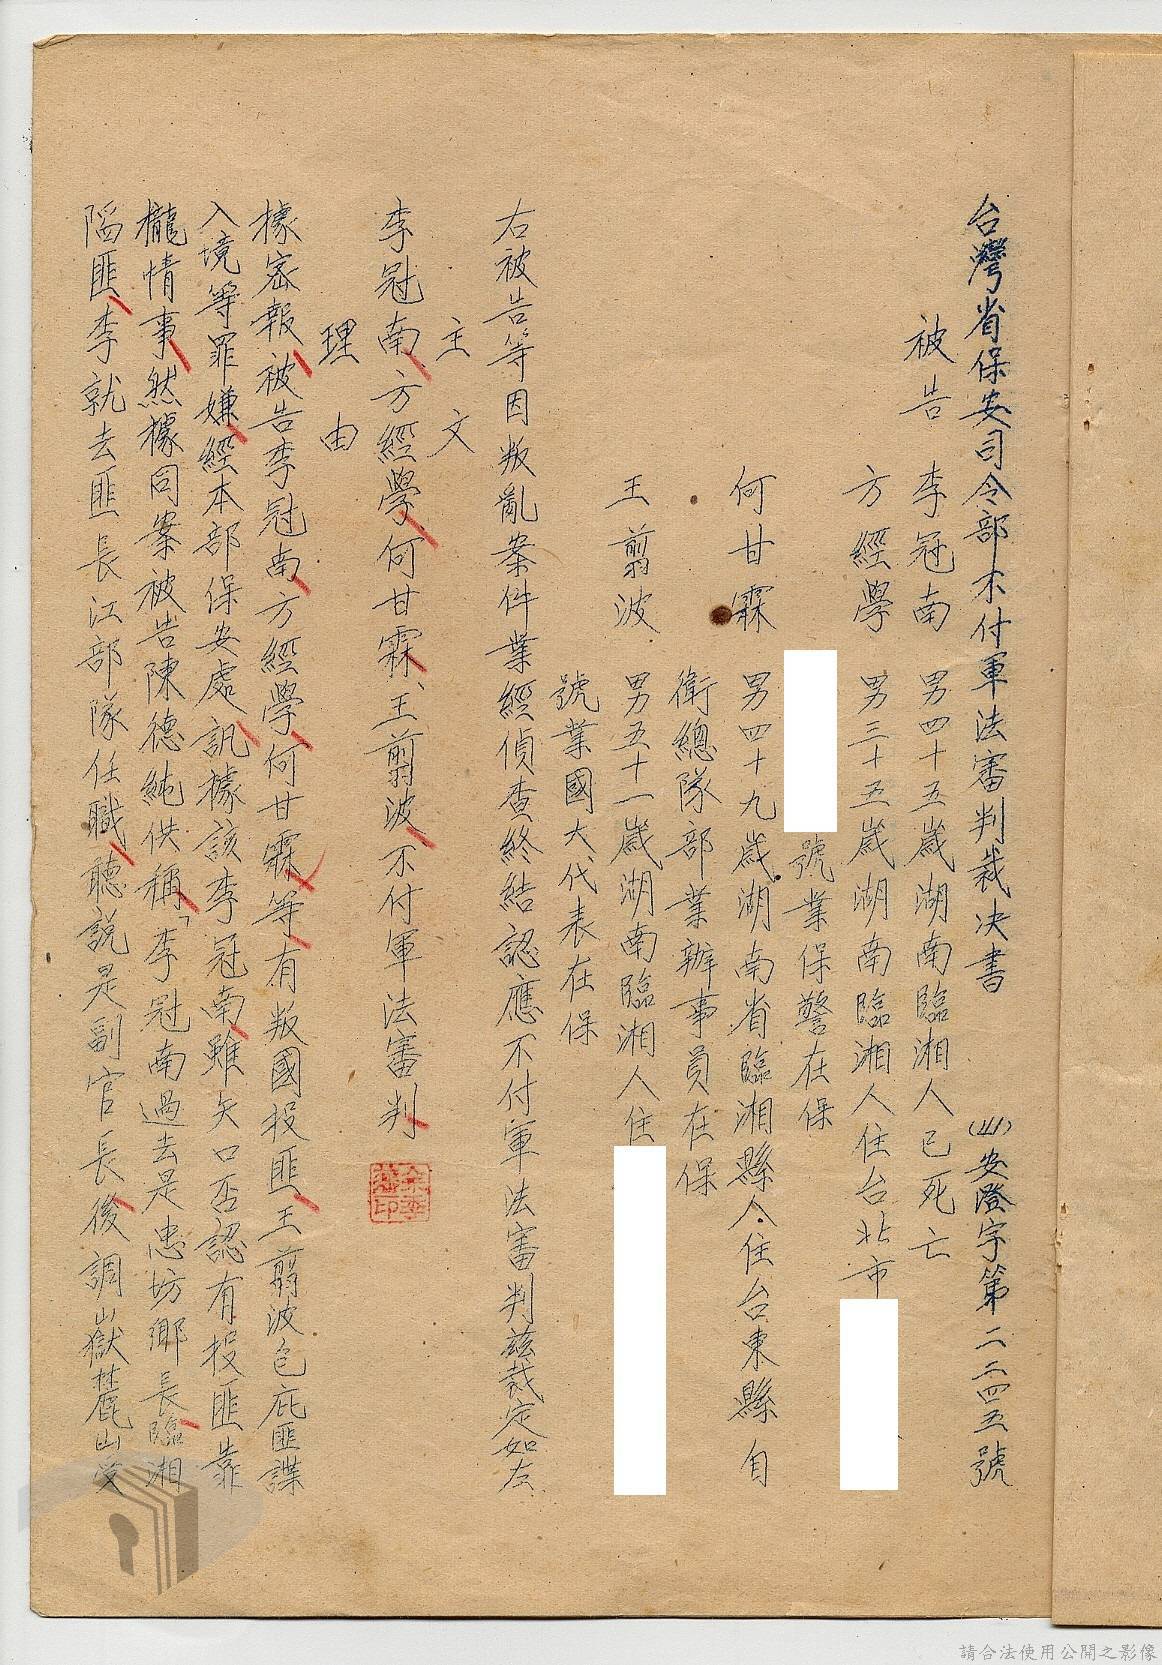 台灣省保安司令部不付軍法審判裁決書 (41)安澄字第二二四五號
被告 李冠南 男四十五歲湖南臨湘人已死亡
方經學 男三十五歲湖南臨湘人住台北市
號業保警在保
何甘霖 男四十九歲湖南省臨湘縣人住台東縣自
衛總隊部業辦事員在保
王翦波 男五十一歲湖南臨湘人住
號業國大代表在保
右被告等因叛亂案件業經偵查終結認應不付軍法審判茲裁定如左
主文
李冠南、方經學、何甘霖、王翦波、不付軍法審判
理由
據密報、被告李冠南、方經學、何甘霖等、有叛國投匪、王翦波包庇匪諜
入境等罪嫌、經本部保安處、訊據該李冠南、雖矢口否認有投匪靠
攏情事、然據同案被告陳德純供稱、「李冠南過去是忠坊鄉長、臨湘
陷匪、李就去匪長江部隊任職、聽說是副官長、後調嶽麓山受
請合法使用公開之影像